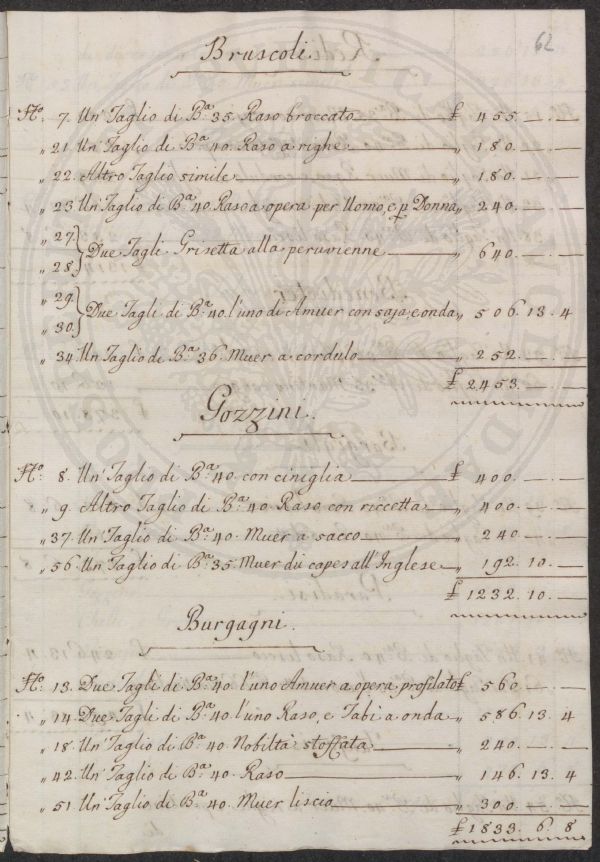 62
Bruscoli.
No. 7. Un' Taglio di Ba. 35. Raso broccato £ 455. — . —
„ 21. Un' Taglio di Ba. 40. Raso a righe „ 180. — . —
„ 22. Altro Taglio simile „ 180. — . —
„ 23 Un' Taglio di Ba. 40. Raso a opera per Uomo, e p Donna „ 240. — . —
„ 27. } Due Tagli Grisetta alla peruvienne „ 640. — . —
„ 28.
„ 29. } Due Tagli di Ba. 40. l'uno di Amuer con saja, e onda „ 506. 13. 4
„ 30.
„ 34. Un' Taglio di Ba. 36. Muer a cordulo „ 252. — . —
£ 2453. — . —
Gozzini.
No. 8. Un' Taglio di Ba. 40. con ciniglia £ 400. — . —
„ 9. Altro Taglio di Ba. 40. Raso con riccetta „ 400. — . —
„ 37. Un' Taglio di Ba. 40. Muer a sacco „ 240. — . —
„ 56. Un' Taglio di Ba. 35. Muer du capes all'Inglese „ 192. 10. —
£ 1232. 10. —
Burgagni.
No. 13. Due Tagli di Ba. 40. l'uno Amuer a opera profilato £ 560. — . —
„ 14. Due Tagli di Ba. 40. l'uno Raso, e Tabi a onda „ 586. 13. 4
„ 18. Un' Taglio di Ba. 40. Nobiltà stoffata „ 240. — . —
„ 42. Un' Taglio di Ba. 40. Raso „ 146. 13. 4
„ 51. Un' Taglio di Ba. 40. Muer liscio „ 300. — . —
£ 1833. 6. 8